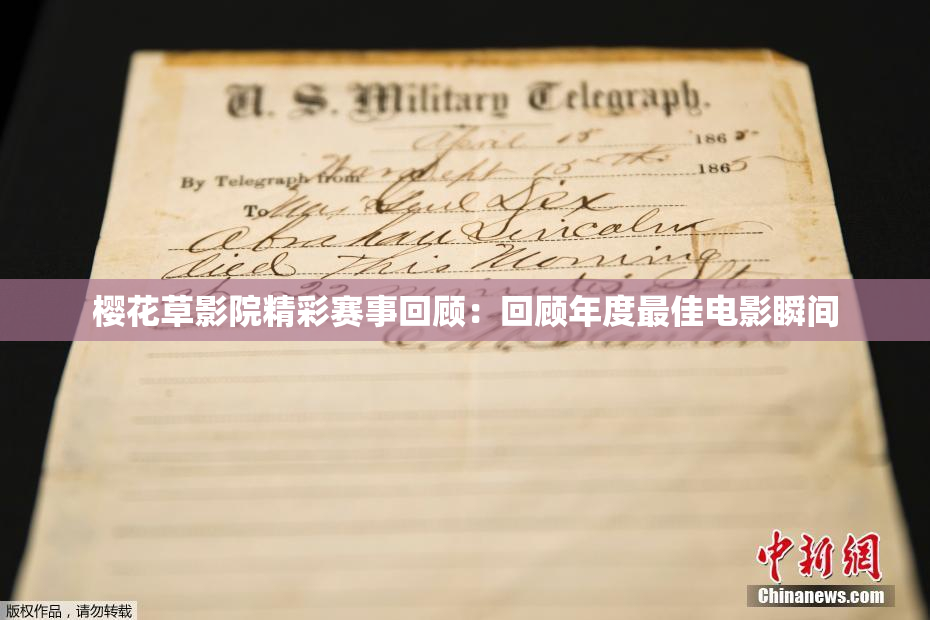 U. S. Military Telegraph.
April 15 1865
By Telegraph from War Dept 15th 1865
To Maj Genl Dix
Abraham Lincoln
died This Morning
22 minutes after
樱花草影院精彩赛事回顾：回顾年度最佳电影瞬间
E. M. Stanton
中新网
Chinanews.com
版权作品，请勿转载